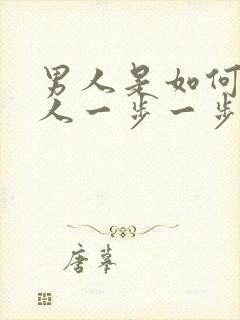 男人是如何
人一步一步
唐摹